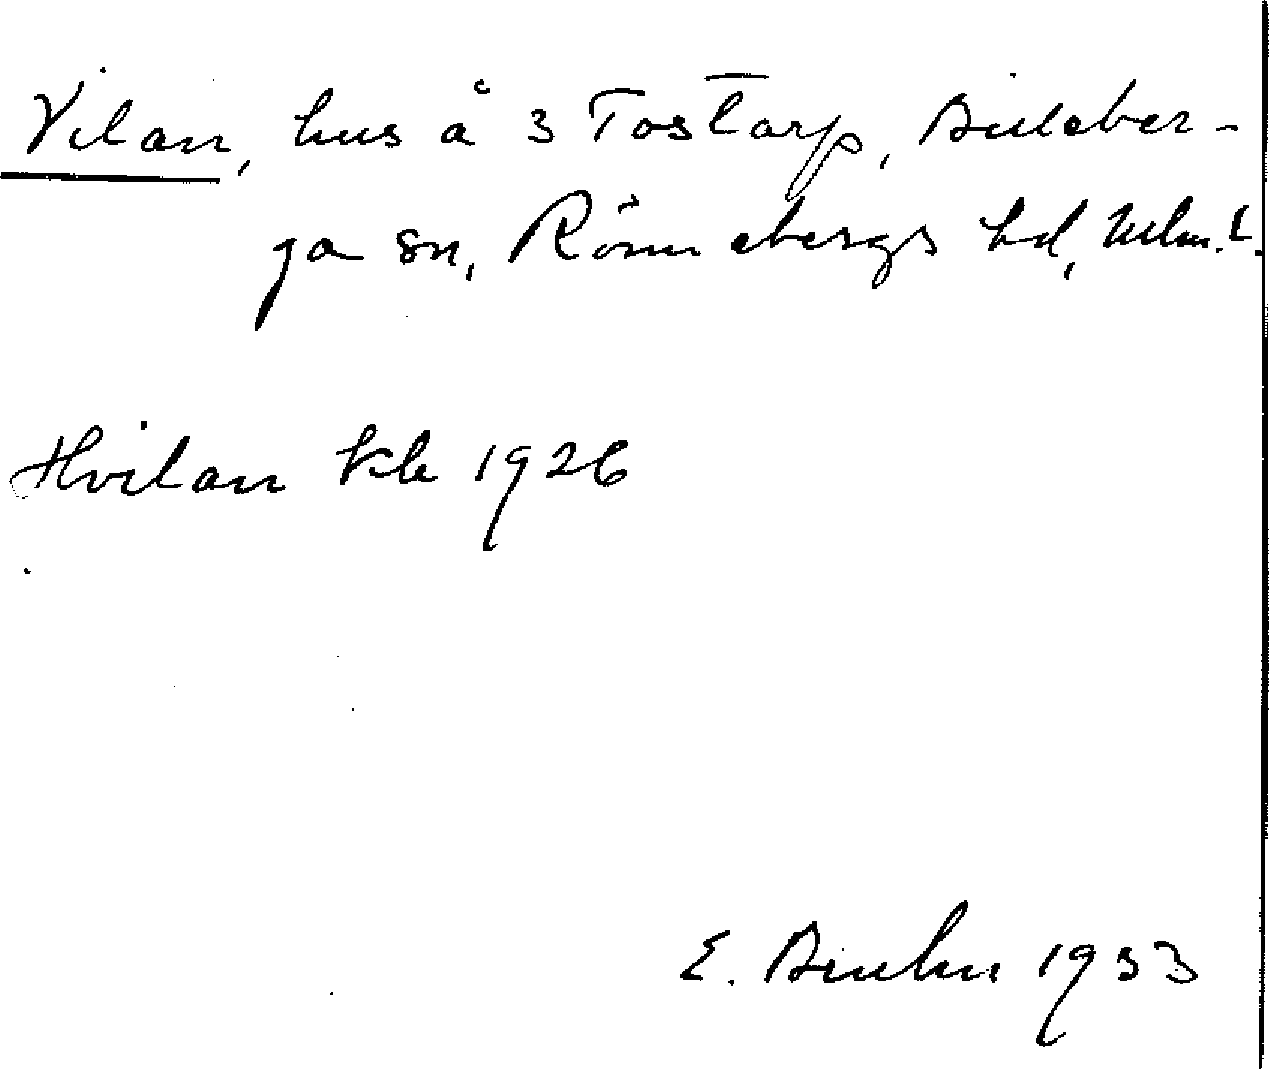 Vilan, hus å 3 Tostarp, Billeber-
ga sn, Rönnebergs hd, Mlm. L.
Hvilan kb 1926
E. 1933